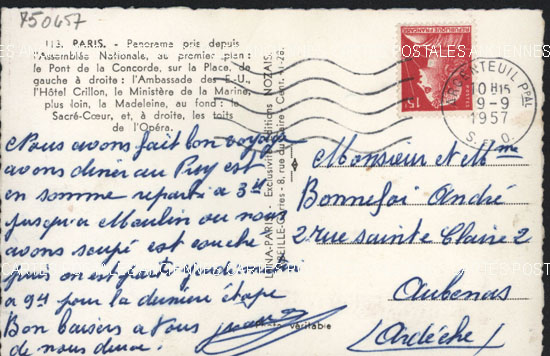 750457
113. PARIS. - Panorama pris depuis
l'Assemblée Nationale, au premier plan :
le Pont de la Concorde, sur la Place, de
gauche à droite : l'Ambassade des E.-U.,
l'Hôtel Crillon, le Ministère de la Marine,
plus loin, la Madeleine, au fond : le
Sacré-Cœur, et, à droite, les toits
de l'Opéra.
Nous avons fait bon voyage
avons diner au Puy est
en somme reparti a 3H
jusqu'a Moulin ou nous
avons soupé est couche
puis on est partis
a 9H pour la dernière étape
Bon baisers a Vous
de nous deux.
LUNA-PARIS - Exclusivité Editions NOZAIS
véritable
RÉPUBLIQUE FRANÇAISE
15
ARGENTEUIL Ppal
10 H15
9-9
1957
S.-&-O.
Monsieur et Mme
Bonnefoi André
2 rue Sainte Claire 2
Aubenas
(Ardèche)
POSTALES ANCIENNES CARTES